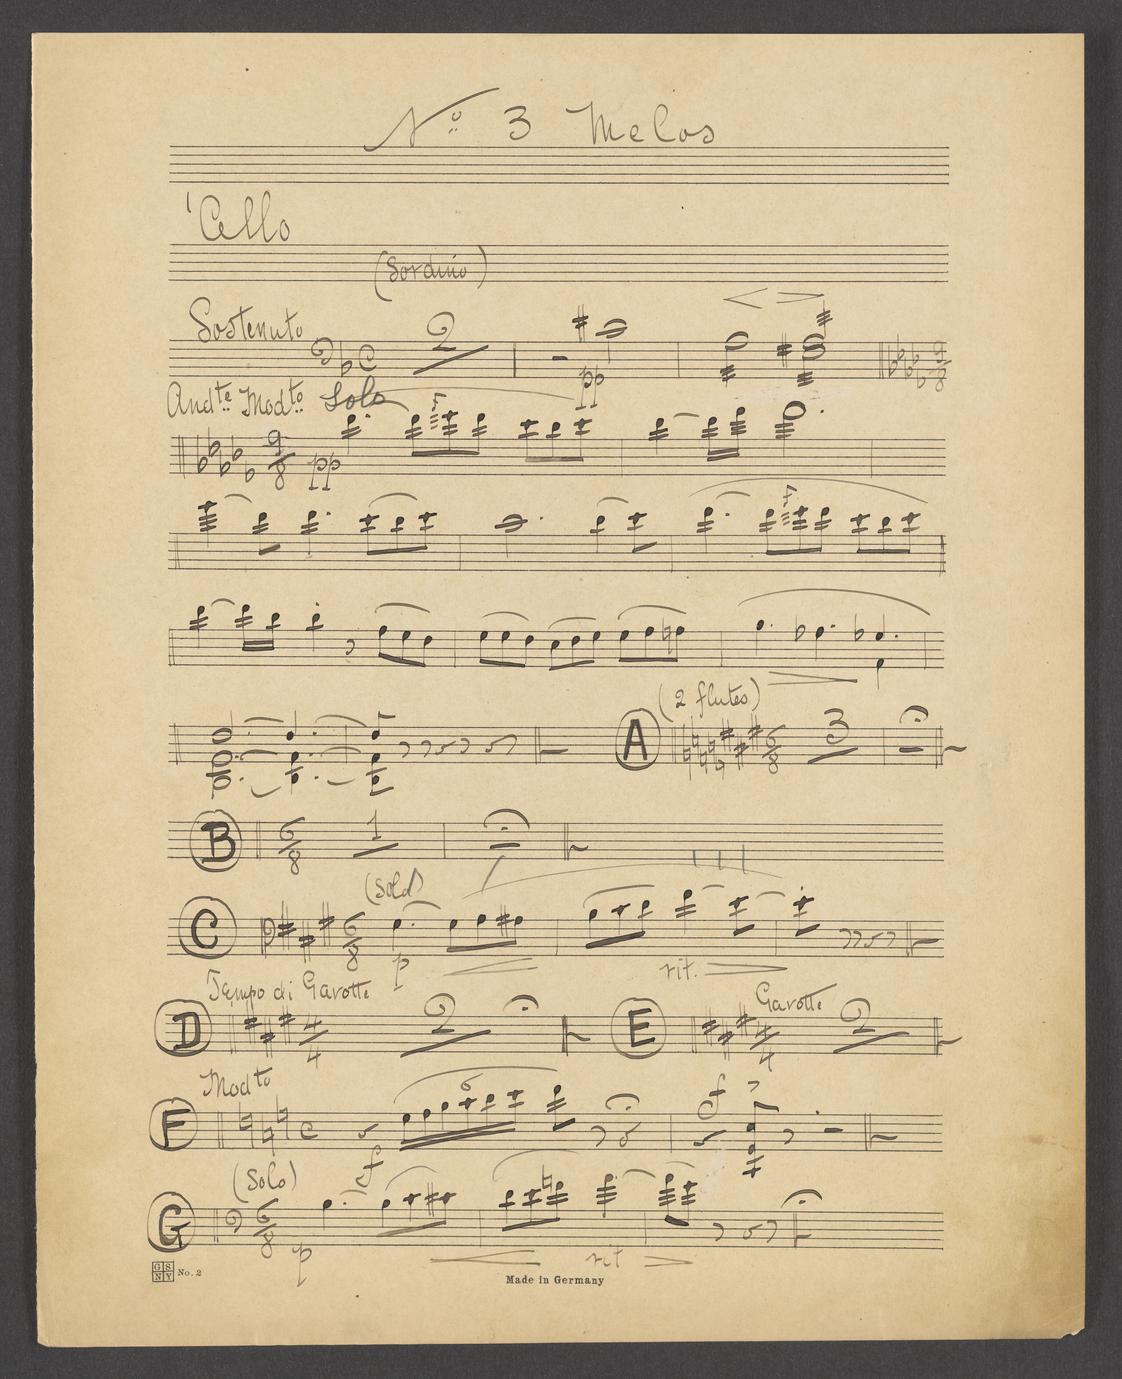 No 3 Melos
'Cello
(Sordino)
Sostenuto 2 pp
Andte Modto Solo
9/8 pp
(2 flutes)
A 6/8 3
B 6/8 1
(Solo)
C 6/8 p rit.
Tempo di Gavotte Gavotte
D 4/4 2 E 4/4 2
Modto
F 6 f f
(Solo)
G 6/8 p rit
GS NY No. 2 Made in Germany